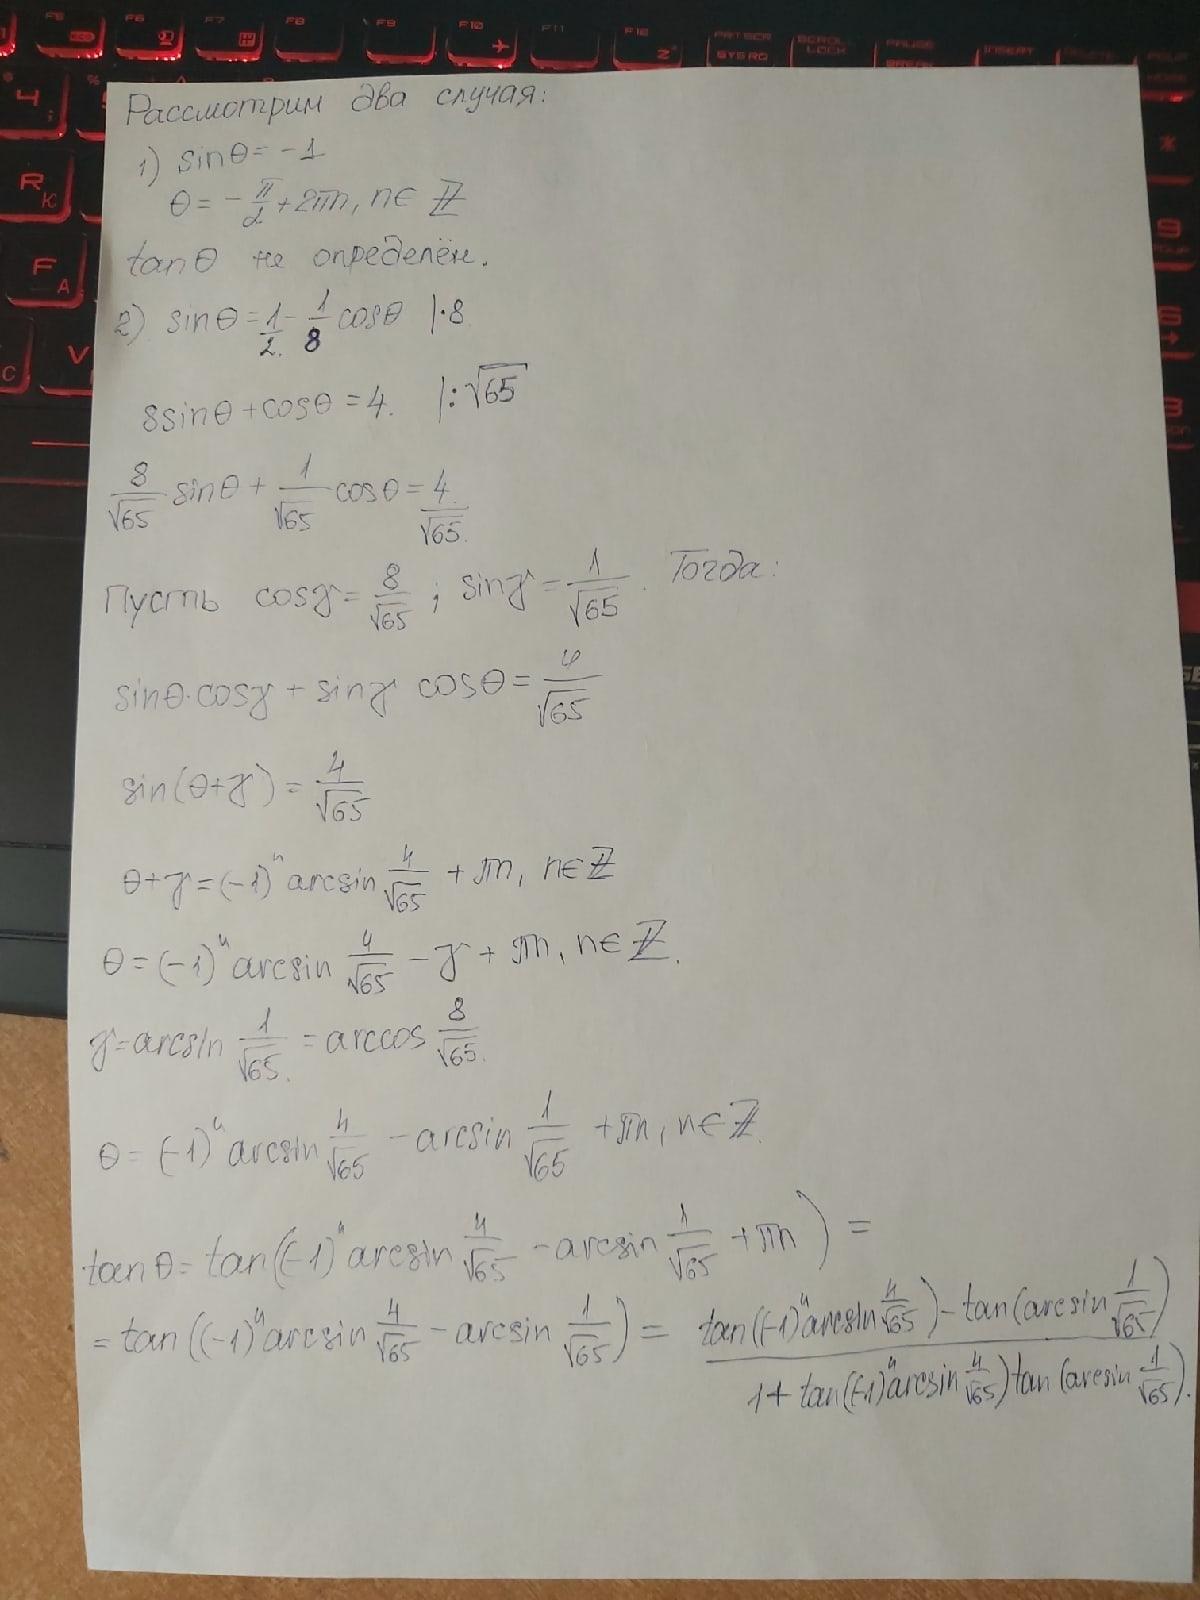 F5 F6 F7 F8 F9 F10 F11 F12 PRT SCR SYS RQ SCROLL LOCK PAUSE BREAK INSERT
Рассмотрим два случая:
1) sinθ = -1
θ = -π/2 + 2πn, n∈ℤ
tanθ не определён.
2) sinθ = 1/2 - 1/8 cosθ |·8
8sinθ + cosθ = 4. |:√65
8/√65 sinθ + 1/√65 cosθ = 4/√65.
Пусть cosγ = 8/√65; sinγ = 1/√65. Тогда:
sinθ·cosγ + sinγ cosθ = 4/√65
sin(θ+γ) = 4/√65
θ+γ = (-1)ⁿ arcsin 4/√65 + πn, n∈ℤ
θ = (-1)ⁿ arcsin 4/√65 - γ + πn, n∈ℤ.
γ = arcsin 1/√65 = arccos 8/√65.
θ = (-1)ⁿ arcsin 4/√65 - arcsin 1/√65 + πn, n∈ℤ.
tanθ = tan((-1)ⁿ arcsin 4/√65 - arcsin 1/√65 + πn) =
= tan((-1)ⁿ arcsin 4/√65 - arcsin 1/√65) = (tan((-1)ⁿ arcsin 4/√65) - tan(arcsin 1/√65))/(1 + tan((-1)ⁿ arcsin 4/√65) tan(arcsin 1/√65)).